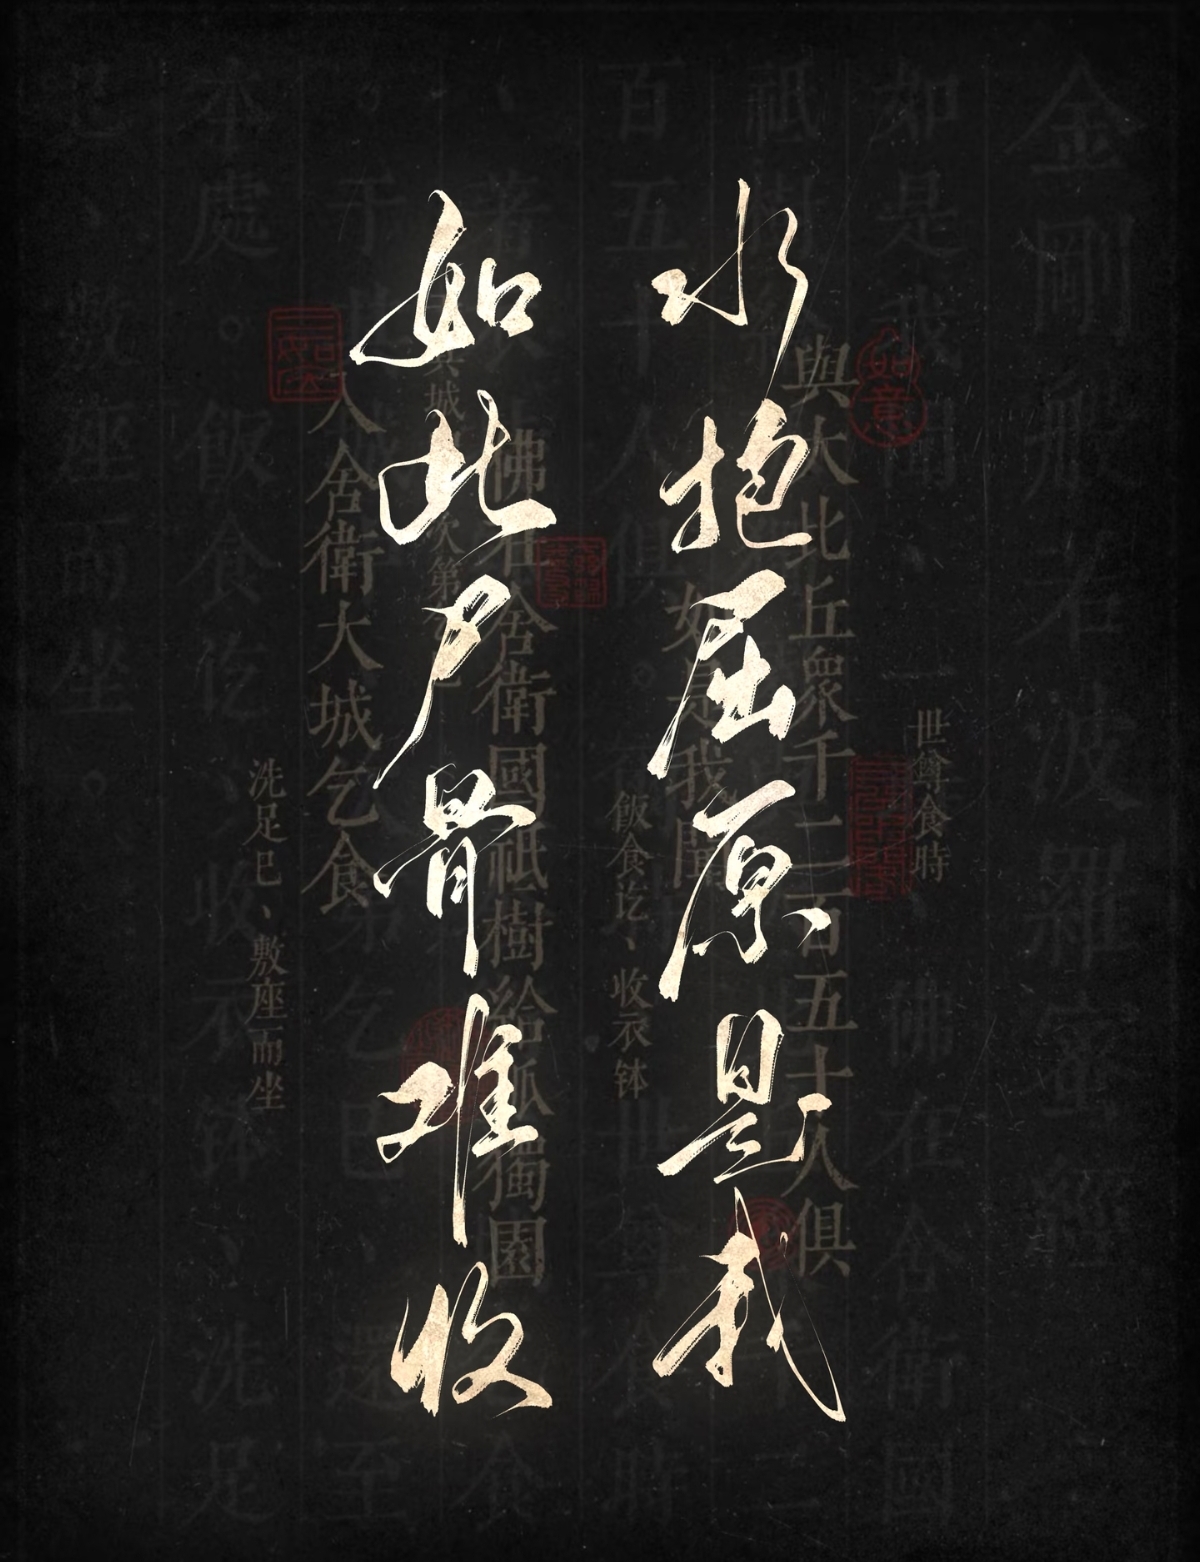 金剛般若波羅蜜經
如是我聞、一時、佛在舍衛國
如意
世尊食時
與大比丘衆千二百五十人俱
水抱屈原是我
如是我聞
飯食訖、收衣钵
佛在舍衛國祇樹給孤獨園
如此尸骨难收
入舍衛大城乞食
洗足已、敷座而坐
本處。飯食訖、收衣钵、洗足
已、敷座而坐。